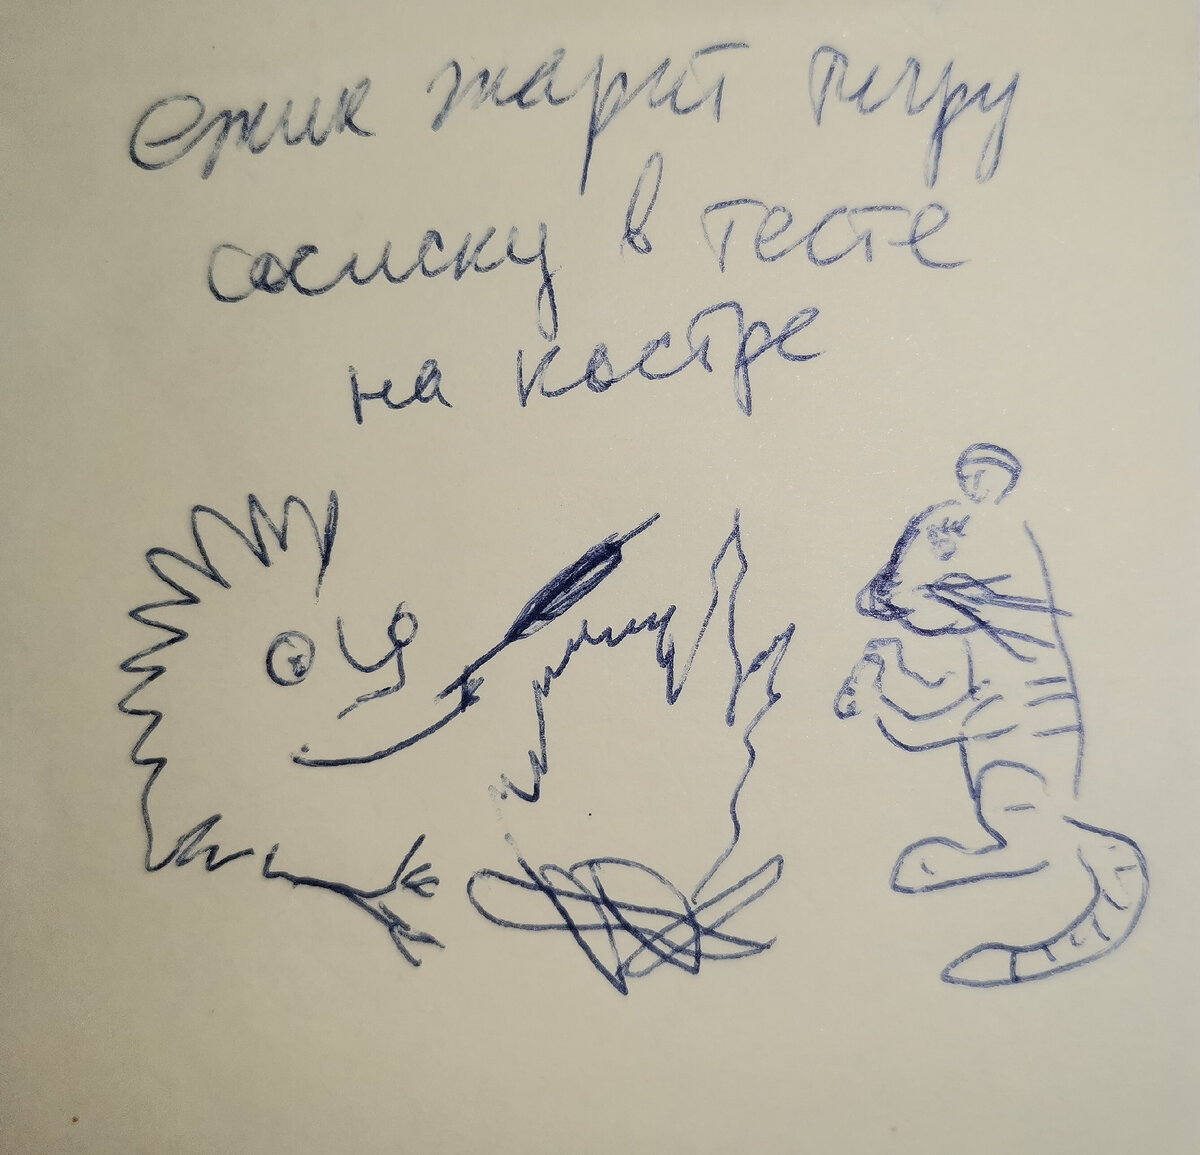 ежик жарит тигру
сосиску в тесте
на костре